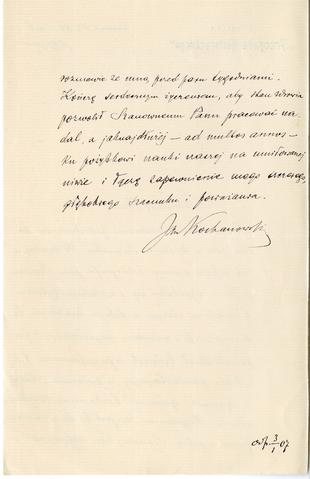 rozmowie ze mną przed paru tygodniami.
Kończę serdecznym życzeniem, aby stan zdrowia
pozwolił Szanownemu Panu pracować na-
dal, a jaknajdłużej — ad multos annos —
ku pożytkowi nauki naszej na umiłowanej
niwie i łączę zapewnienie mego szczerego,
głębokiego szacunku i poważania.
Jan Kochanowski
odp. 3/I 07